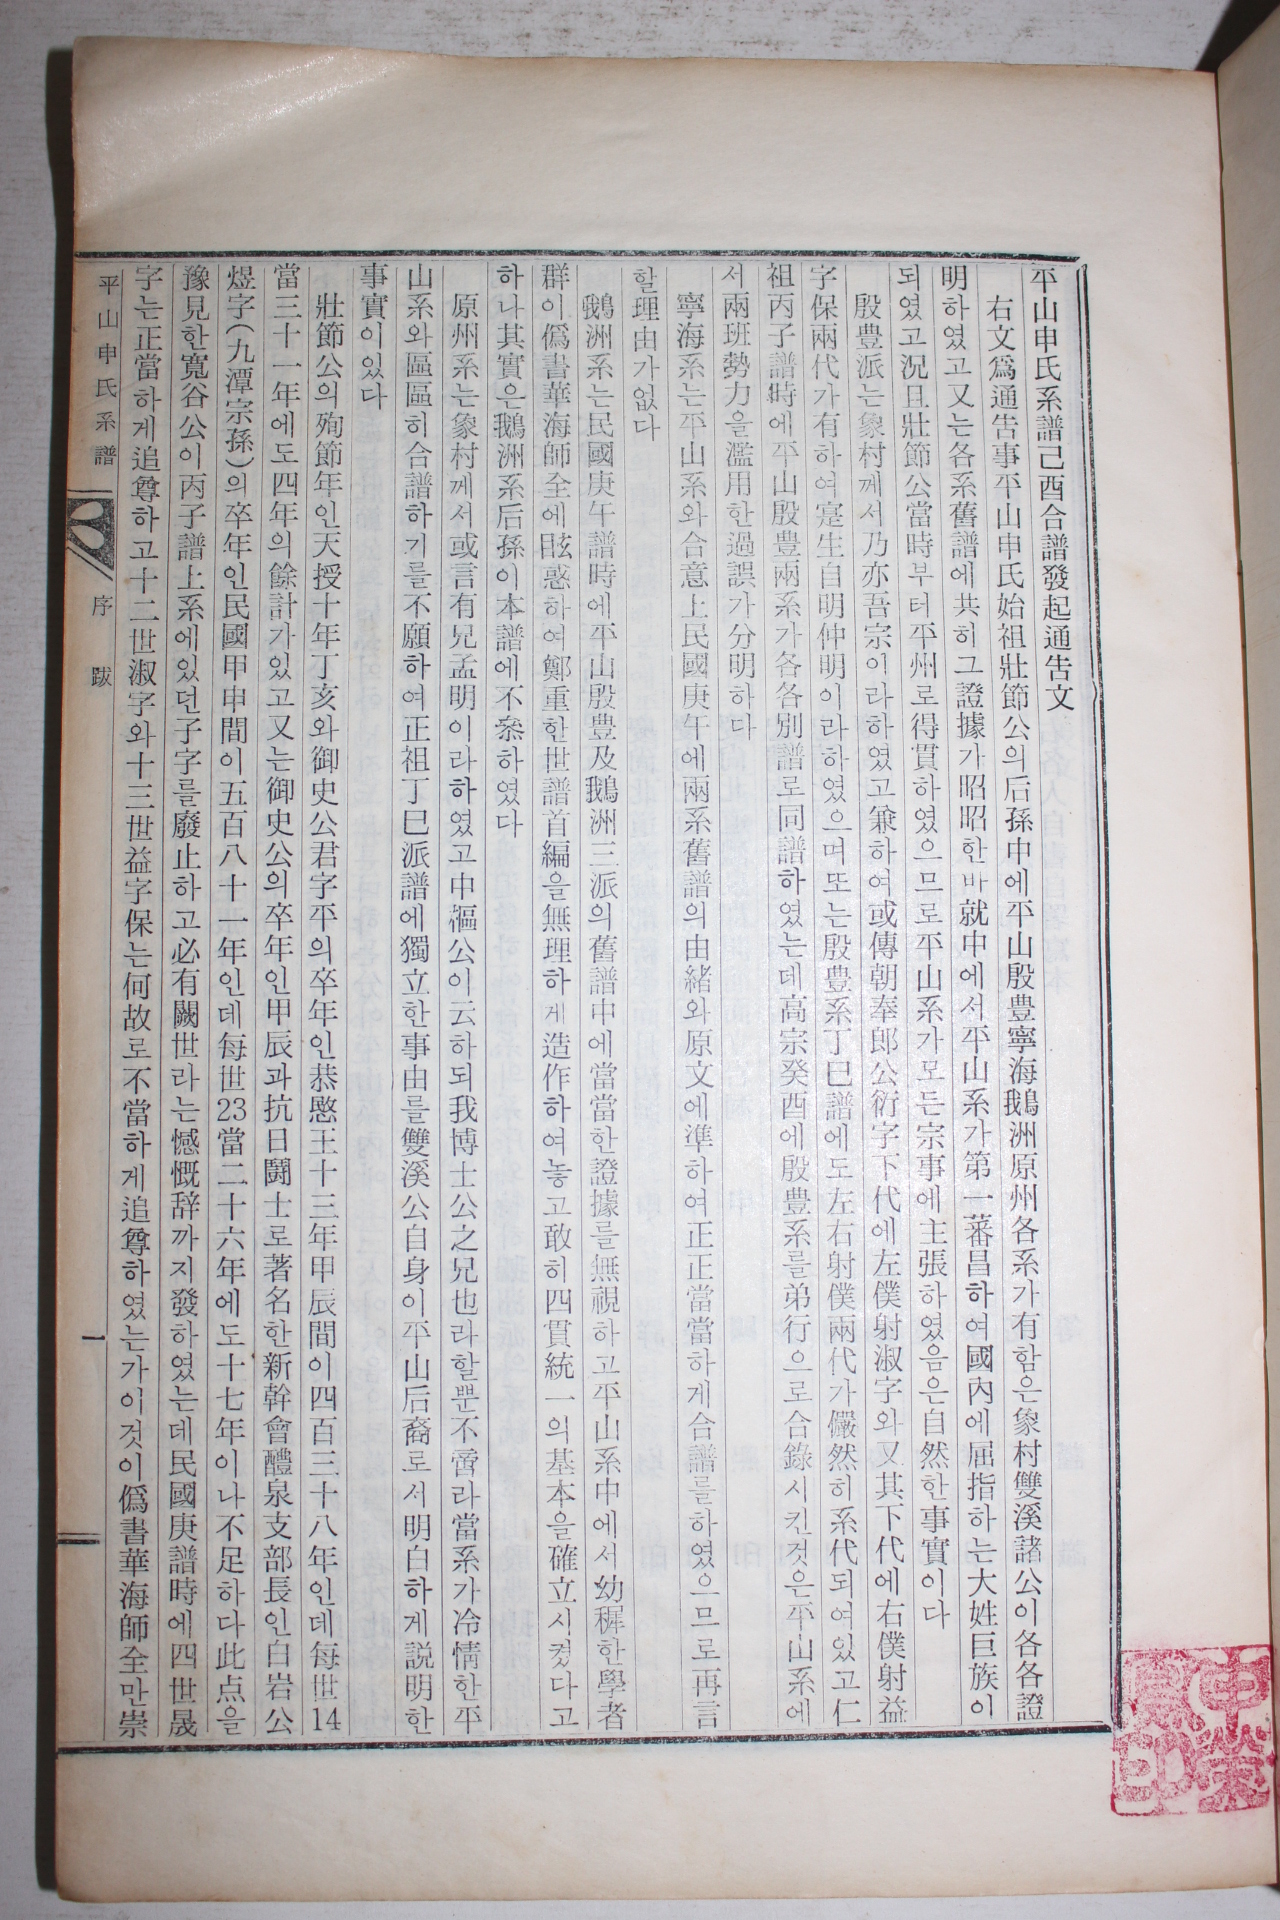 平山申氏系譜己酉合譜發起通告文
右文爲通告事平山申氏始祖壯節公의后孫中에平山殷豊寧海鵝洲原州各系가有함은象村雙溪諸公이各各證
明하였고又는各系舊譜에共히그證據가昭昭한바就中에서平山系가第一蕃昌하여國內에屈指하는大姓巨族이
되였고況且壯節公當時부터平州로得貫하였으므로平山系가모든宗事에主張하였음은自然한事實이다
殷豊派는象村께서乃亦吾宗이라하였고兼하여或傳朝奉郞公衍字下代에左僕射淑字와又其下代에右僕射益
字保兩代가有하여寔生自明仲明이라하였으며또는殷豊系丁巳譜에도左右射僕兩代가儼然히系代되여있고仁
祖丙子譜時에平山殷豊兩系가各各別譜로同譜하였는데高宗癸酉에殷豊系를弟行으로合錄시킨것은平山系에
서兩班勢力을濫用한過誤가分明하다
寧海系는平山系와合意上民國庚午에兩系舊譜의由緖와原文에準하여正正當當하게合譜를하였으므로再言
할理由가없다
鵝洲系는民國庚午譜時에平山殷豊及鵝洲三派의舊譜中에當當한證據를無視하고平山系中에서幼穉한學者
群이僞書華海師全에眩惑하여鄭重한世譜首編을無理하게造作하여놓고敢히四貫統一의基本을確立시켰다고
하나其實은鵝洲系后孫이本譜에不叅하였다
原州系는象村께서或言有兄孟明이라하였고中樞公이云하되我博士公之兄也라할뿐不啻라當系가冷情한平
山系와區區히合譜하기를不願하여正祖丁巳派譜에獨立한事由를雙溪公自身이平山后裔로서明白하게説明한
事實이있다
壯節公의殉節年인天授十年丁亥와御史公君字平의卒年인恭愍王十三年甲辰間이四百三十八年인데每世14
當三十一年에도四年의餘計가있고又는御史公의卒年인甲辰과抗日鬪士로著名한新幹會醴泉支部長인白岩公
煜字(九潭宗孫)의卒年인民國甲申間이五百八十一年인데每世23當二十六年에도十七年이나不足하다此点을
豫見한寬谷公이丙子譜上系에있던子字를廢止하고必有闕世라는憾慨辞까지發하였는데民國庚譜時에四世晟
字는正當하게追尊하고十二世淑字와十三世益字保는何故로不當하게追尊하였는가이것이僞書華海師全만崇
平山申氏系譜 序跋 一
申榮 印